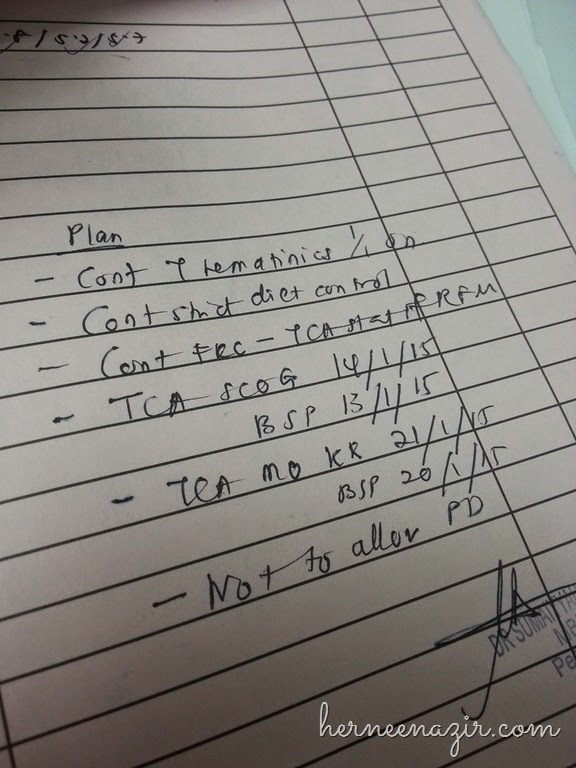 Plan
- Cont T hematinics 1/1 on
- Cont strict diet control
- Cont FKC - TCA stat if RFM
- TCA SCOG 14/1/15
BSP 13/1/15
- TCA MO KK 21/1/15
BSP 20/1/15
- Not to allow PD
DR SUMAIYAH
herneenazir.com